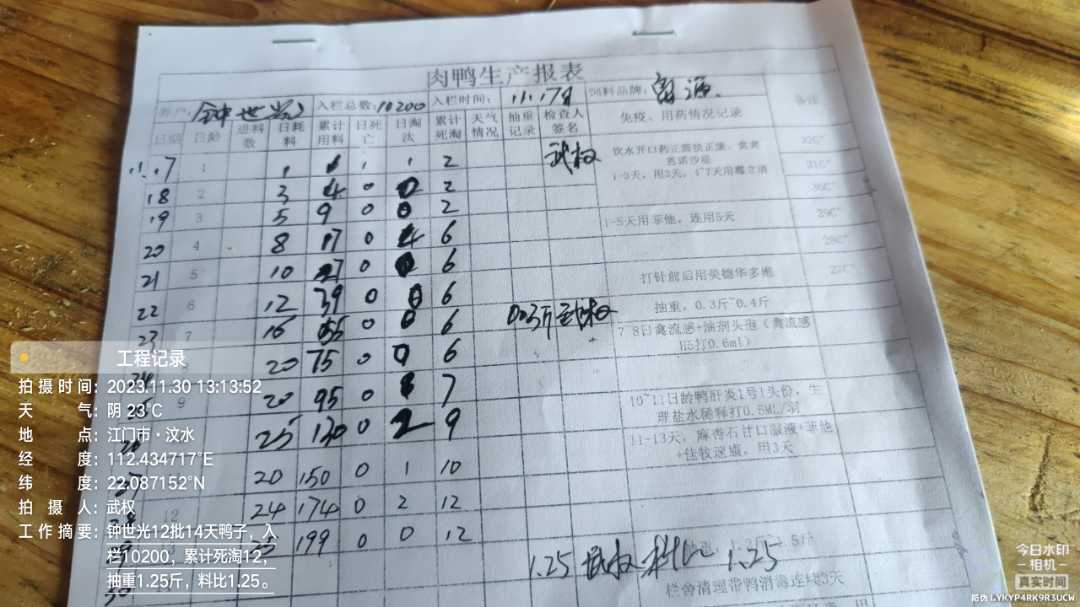 肉鸭生产报表
客户: 钟世光 入栏总数: 10200 入栏时间: 11.17日 饲料品牌:
日期 日龄 进料数 日耗料 累计用料 日死亡 日淘汰 累计死淘 天气情况 抽重记录 检查人签名 免疫、用药情况记录 备注
11.17 1 1 1 1 1 2 武权 32C°
1-3天，用3天，
18 2 3 4 0 0 2 31C°
30C°
19 3 5 9 0 0 2 1-5天用，连用5天 29C°
20 4 8 17 0 4 6 28C°
21 5 10 27 0 0 6 打针前后用英德华多维 27C°
22 6 12 39 0 0 6 抽重，0.3斤~0.4斤
23 7 16 55 0 0 6 0.3斤 武权 7-8日禽流感+油剂头孢（禽流感H5打0.6ml）
24 20 75 0 0 6
25 9 20 95 0 1 7 10~11日龄鸭肝炎1号1头份，生理盐水稀释打0.5ML/羽
25 130 0 2 9 11-13天，麻杏石甘口服液+
27 20 150 0 1 10 用3天
12 24 174 0 2 12
199 0 0 12
1.25 武权 料比 1.25
30 栏舍清理带鸭消毒连续3天
工程记录
拍摄时间: 2023.11.30 13:13:52
天气: 阴 23℃
地点: 江门市·汶水
经度: 112.434717°E
纬度: 22.087152°N
拍摄人: 武权
工作摘要: 钟世光12批14天鸭子，入
栏10200，累计死淘12，
抽重1.25斤，料比1.25。
今日水印
-相机-
真实时间
防伪 LYKYP4RK9R3UCW